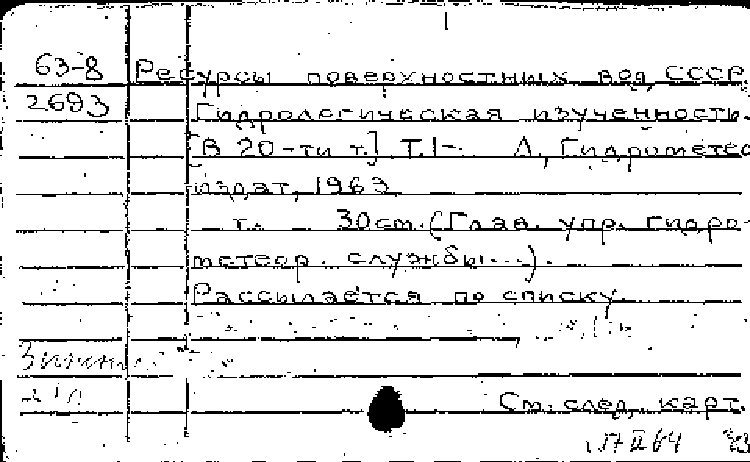 63-8 Ресурсы поверхностных вод СССР.
2693 Гидрологическая изученность.
[В 20-ти т.] Т.1- Л., Гидрометео
издат, 1963
т. 30см. (Глав. упр. гидро-
метеор. службы...).
Рассылается по списку.
См. след. карт.
17 II 64